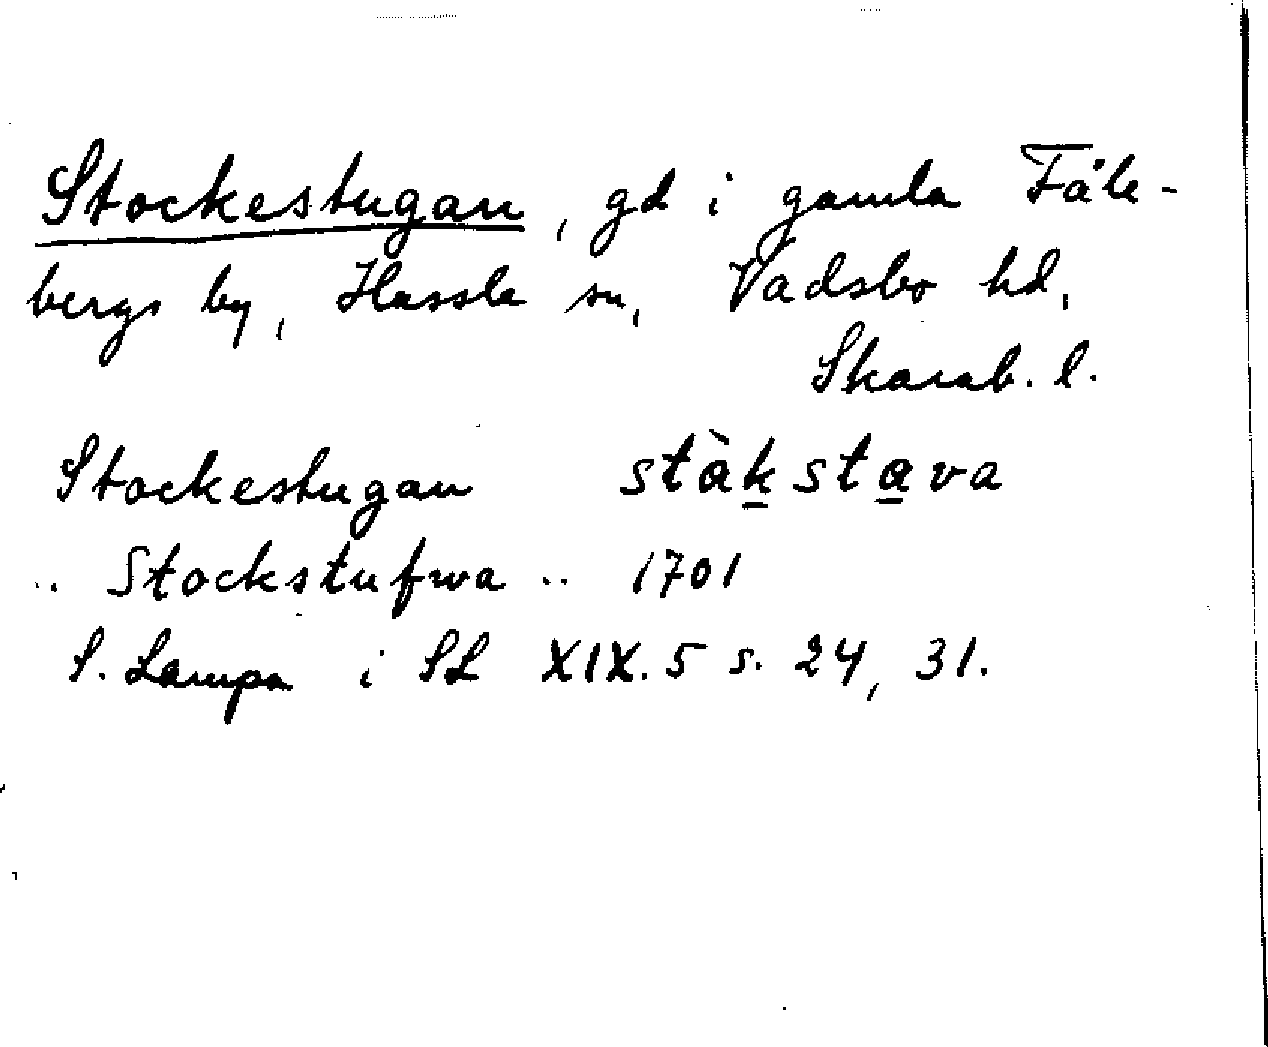 Stockestugan, gd i gamla Fäle-
bergs by, Hassle sn, Vadsbo hd,
Skarab. l.
Stockestugan stàkstava
.. Stockstufwa .. 1701
S. Lampa i SL XIX.5 s. 24, 31.